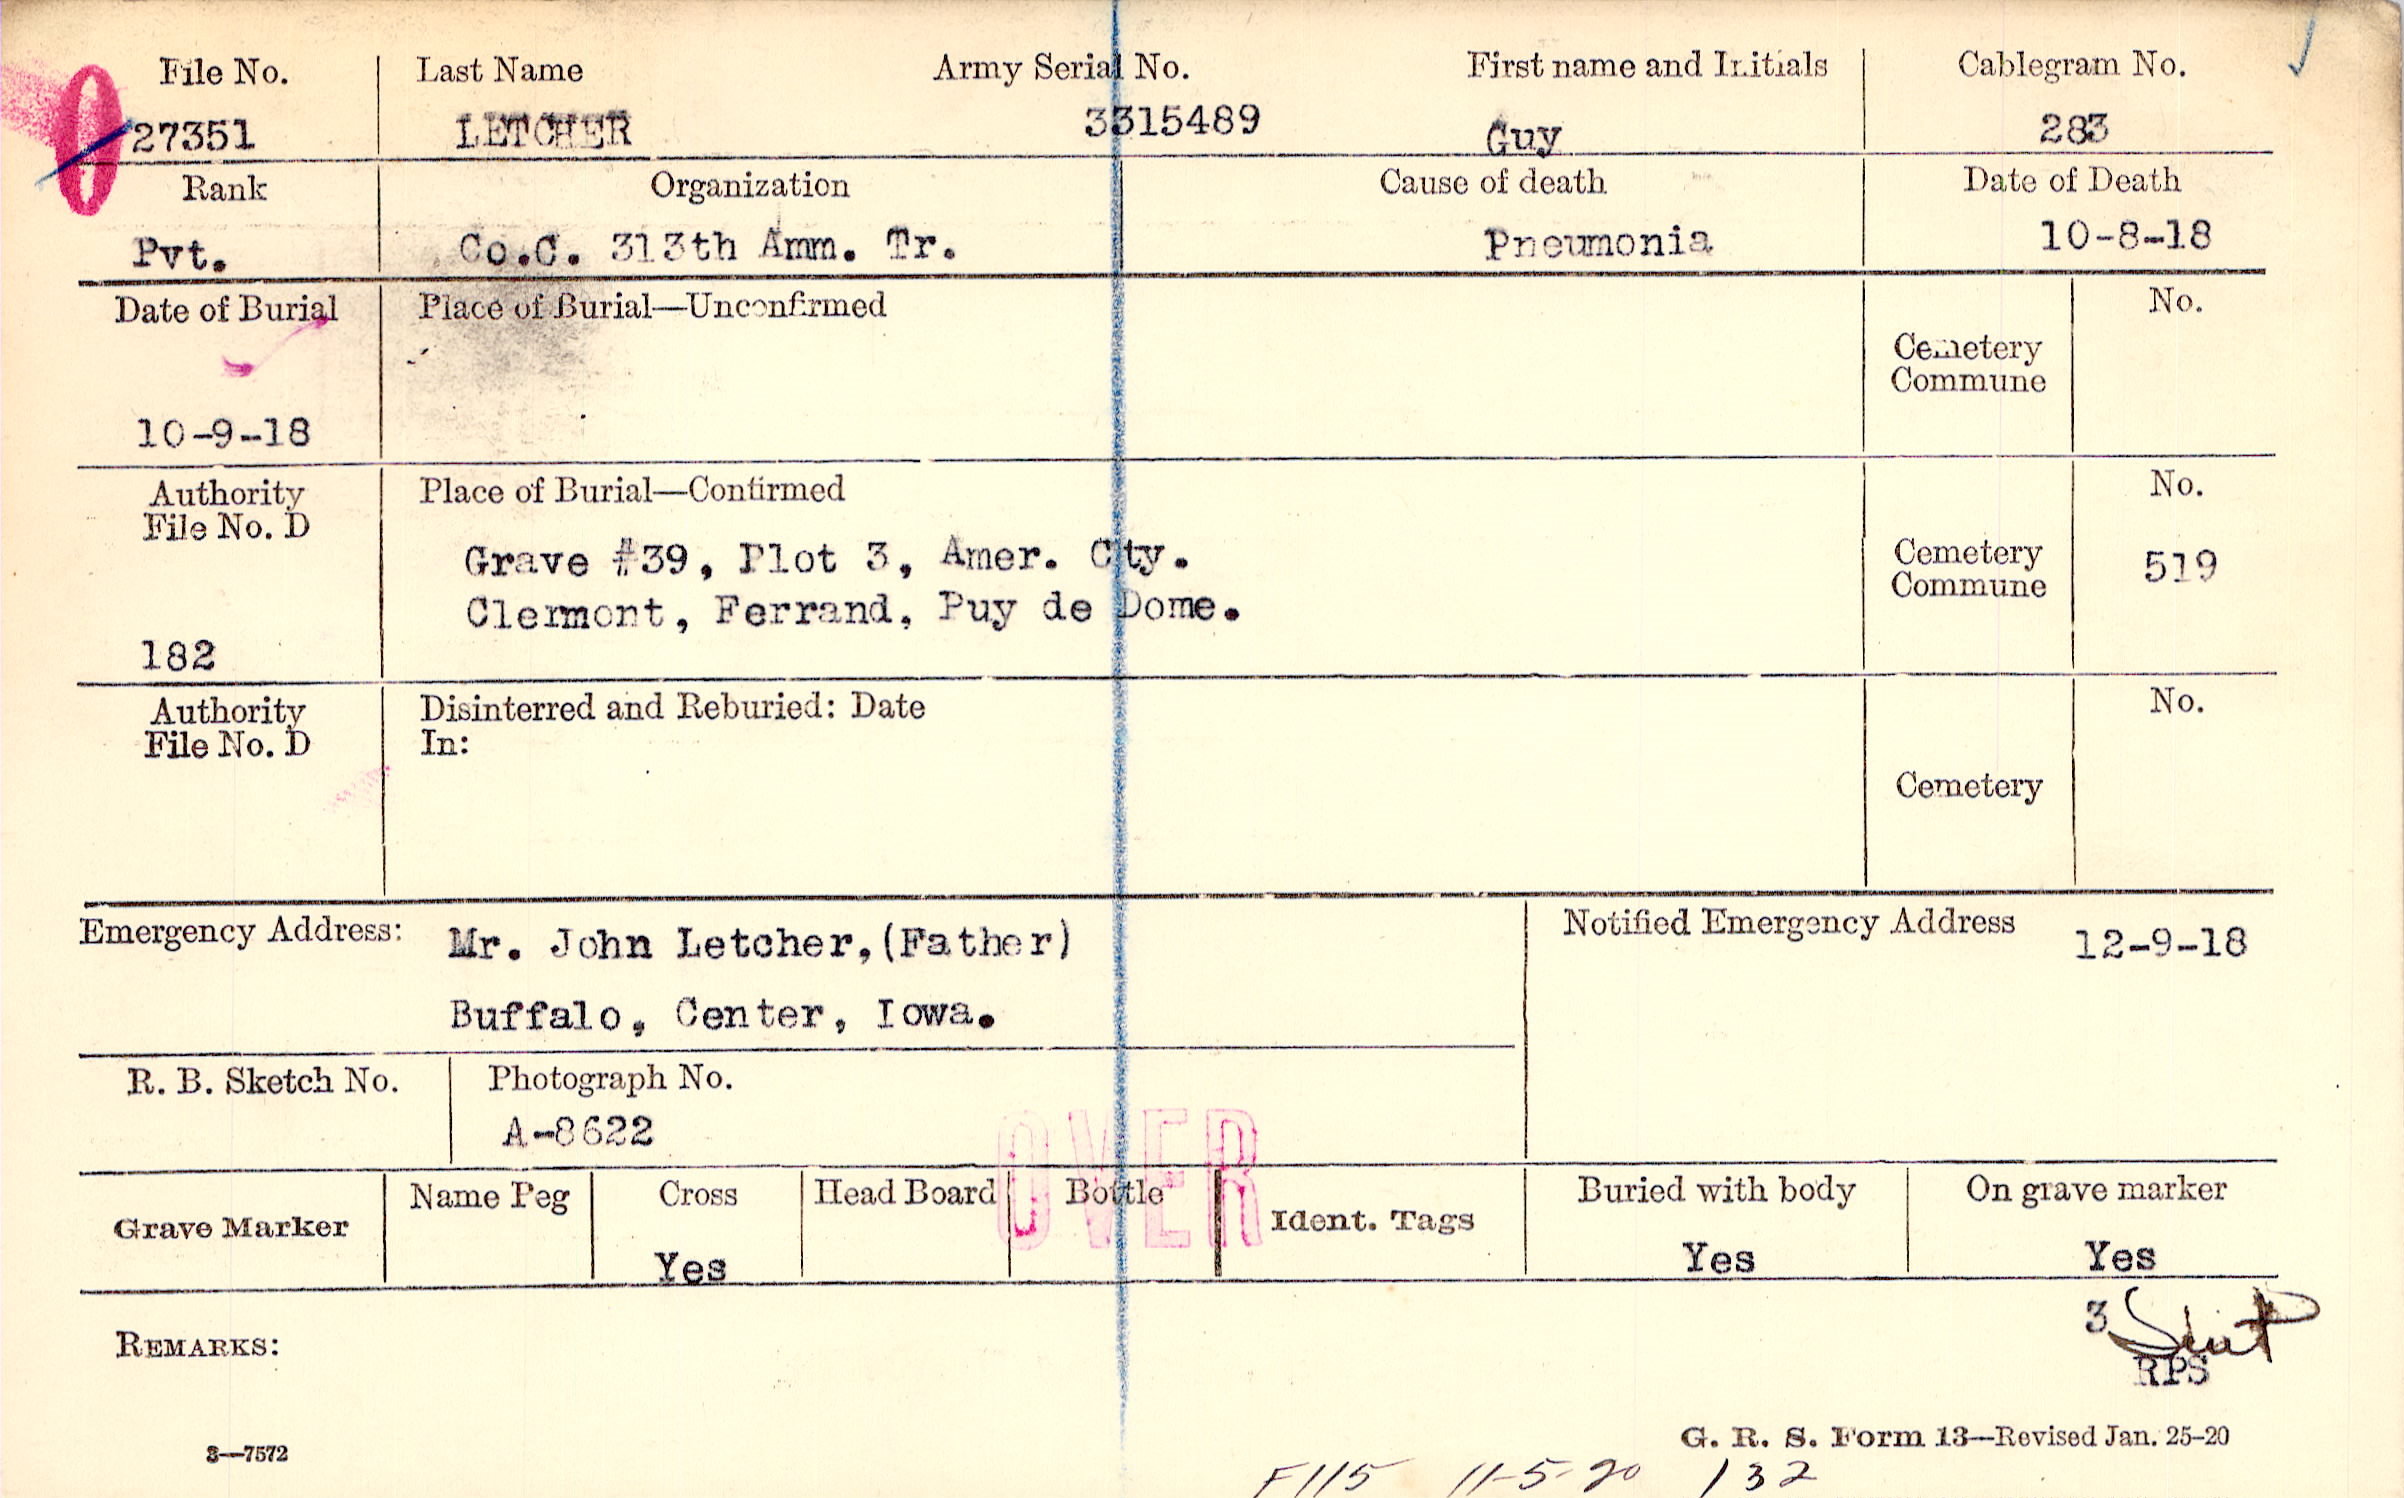 File No. Last Name Army Serial No. First name and Initials Cablegram No.
27351 LETCHER 3315489 Guy 283
Rank Organization Cause of death Date of Death
Pvt. Co.C. 313th Amm. Tr. Pneumonia 10-8-18
Date of Burial Place of Burial—Unconfirmed No.
Cemetery
Commune
10-9-18
Authority Place of Burial—Confirmed No.
File No. D
Grave #39, Plot 3, Amer. Cty. Cemetery 519
Clermont, Ferrand, Puy de Dome. Commune
182
Authority Disinterred and Reburied: Date No.
File No. D In:
Cemetery
Emergency Address: Mr. John Letcher,(Father) Notified Emergency Address 12-9-18
Buffalo, Center, Iowa.
R. B. Sketch No. Photograph No.
A-8622
OVER
Grave Marker Name Peg Cross Head Board Bottle Ident. Tags Buried with body On grave marker
Yes Yes Yes
3
REMARKS:
RPS
3—7572 G. R. S. Form 13—Revised Jan. 25-20
F115 11-5-20 132